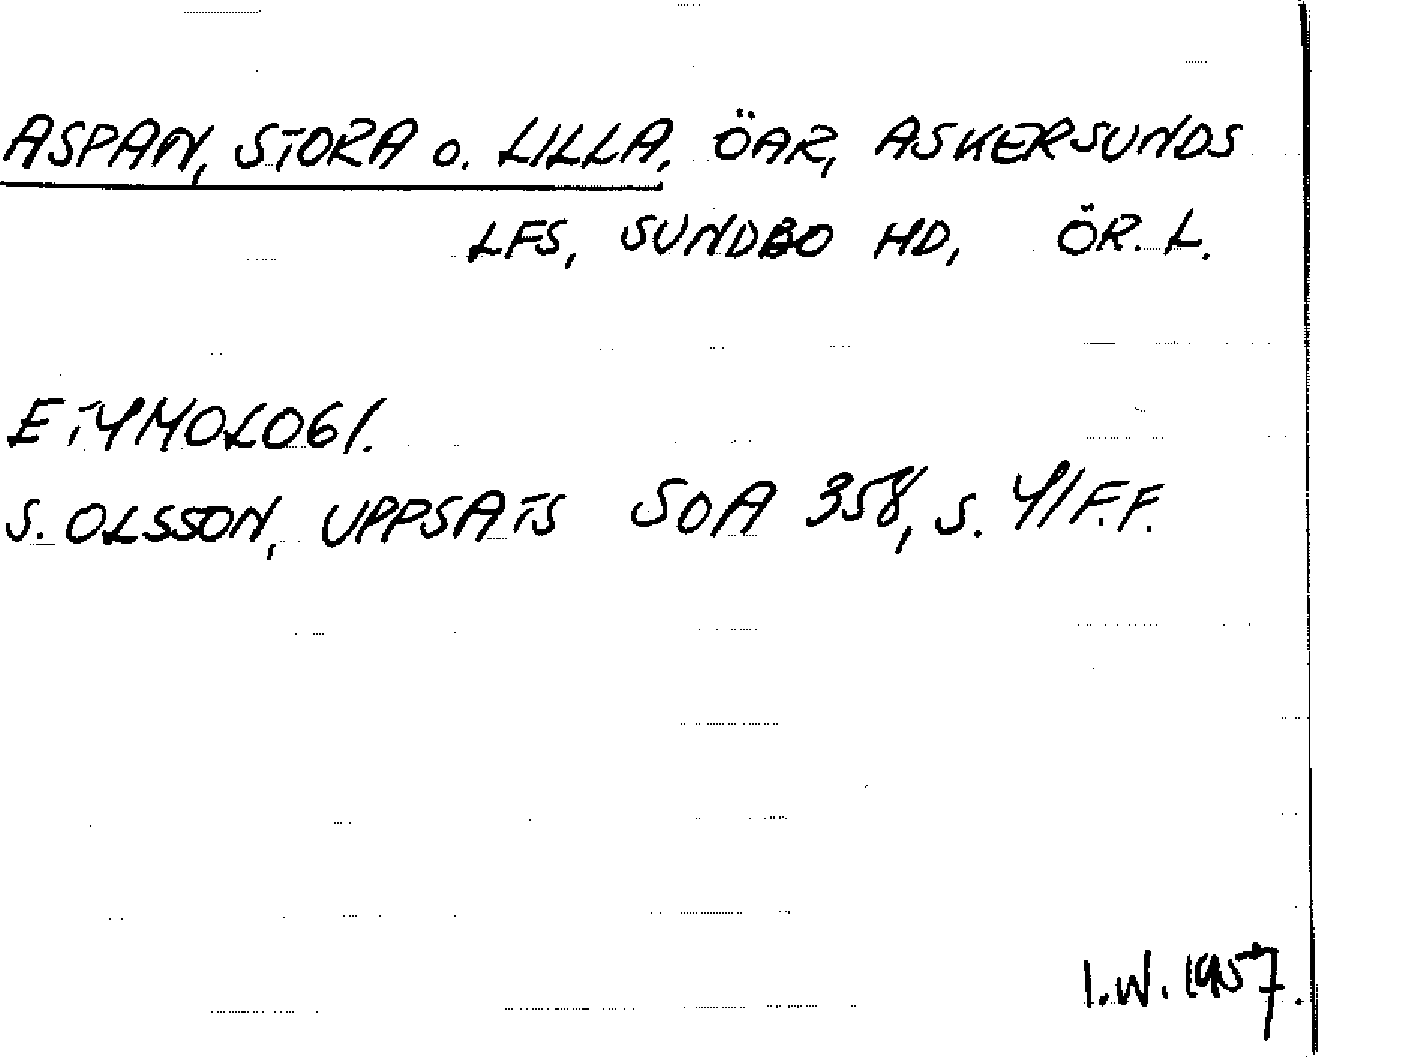 ASPAN, STORA o. LILLA, ÖAR, ASKERSUNDS
LFS, SUNDBO HD, ÖR. L.
ETYMOLOGI.
S. OLSSON, UPPSATS SOA 358, S. 41 F.F.
I.W. 1957.